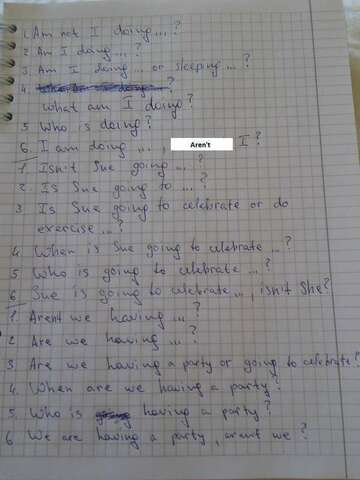 1. Am not I doing ... ?
2. Am I doing ... ?
3. Am I doing ... or sleeping ... ?
4. ?
What am I doing?
5 Who is doing?
6. I am doing ... , Aren't I ?
1. Isn't She going ... ?
2. Is She going to ... ?
3 Is She going to celebrate or do
exercise ... ?
4 When is She going to celebrate ... ?
5 Who is going to celebrate ... ?
6 She is going to celebrate ... , isn't She?
1. Arent we having ... ?
2. Are we having ... ?
3. Are we having a party or going to celebrate?
4. When are we having a party?
5. Who is having a party?
6 We are having a party, arent we ?